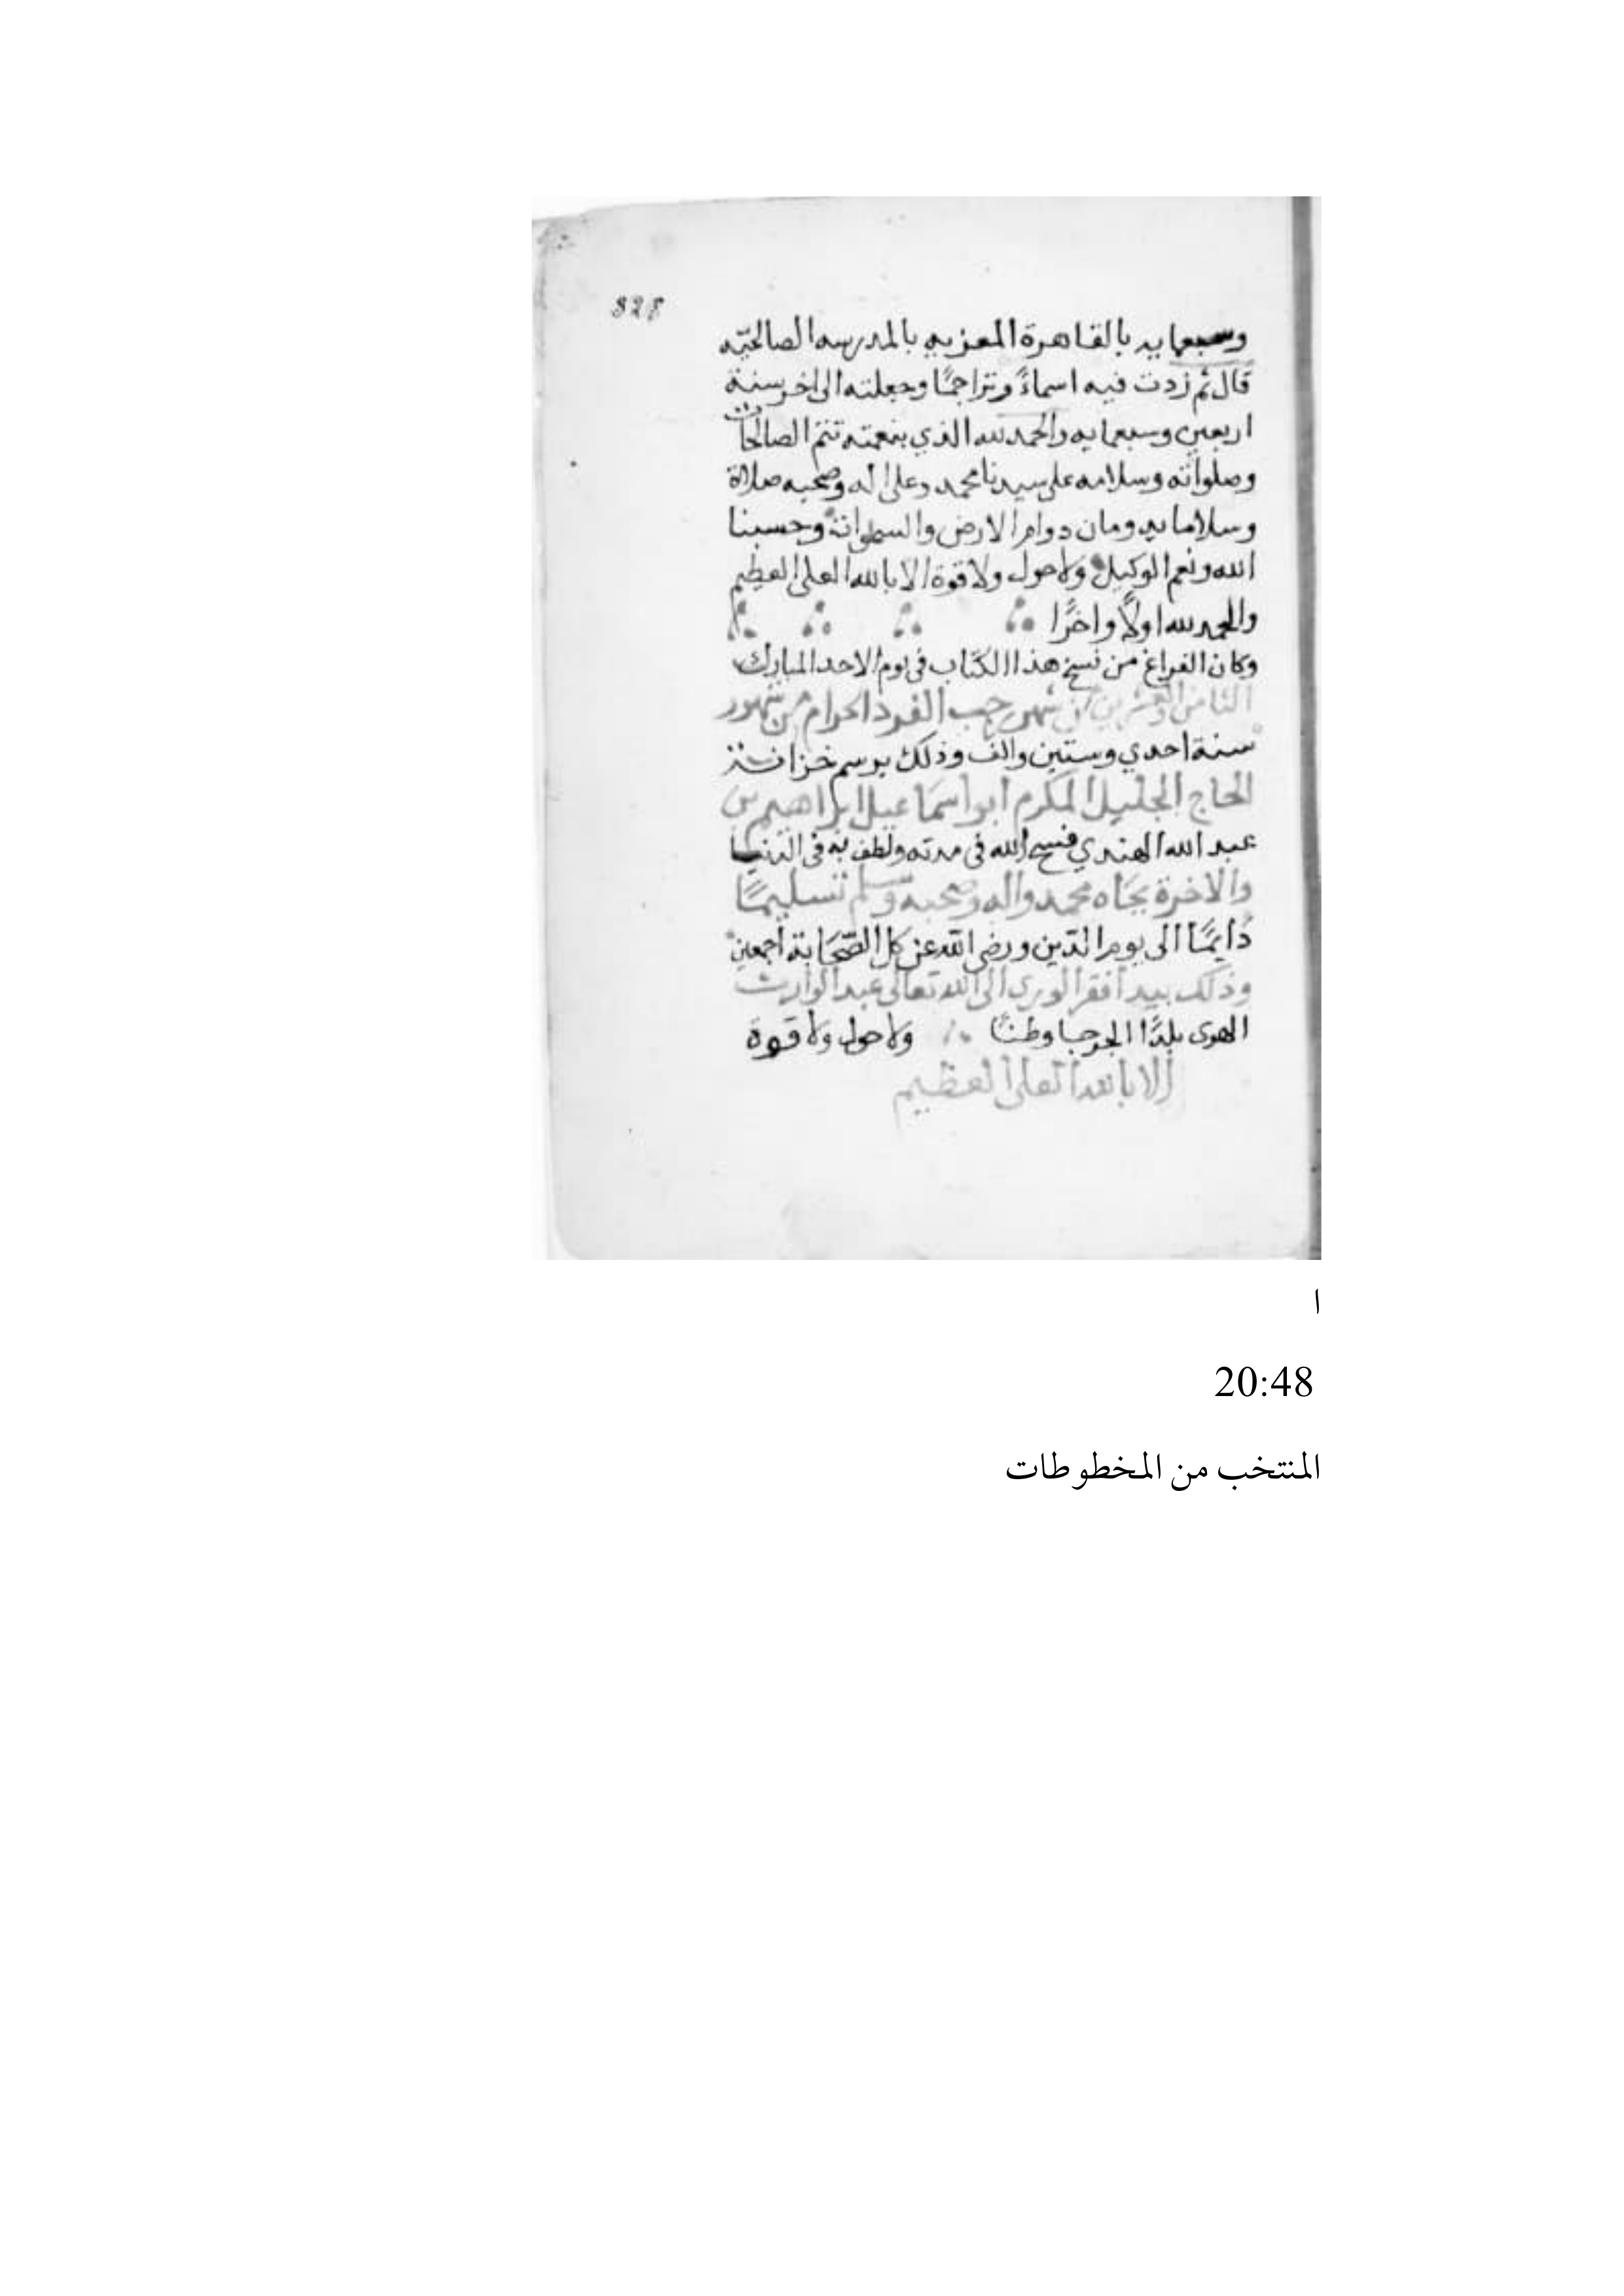 328
وسبعمايه بالقاهرة المعزيه بالمدرسه الصالحيّه
قال ثم زدت فيه اسماءً وتراجمًا وجعلته الى اخر سنة
اربعين وسبعمايه والحمد لله الذي بنعمته تتم الصالحات
وصلواته وسلامه على سيدنا محمد وعلى اله وصحبه صلاة
وسلاما يدومان دوام الارض والسموات وحسبنا
الله ونعم الوكيل ولا حول ولا قوة الا بالله العلى العظيم
والحمد لله اولًا واخرًا
وكان الفراغ من نسخ هذا الكتاب فى يوم الاحد المبارك
الثامن والعشرين من شهر رجب الفرد الحرام من شهور
سنة احدي وستين والف وذلك برسم خزانة
الحاج الجليل المكرم ابو اسماعيل ابراهيم بن
عبد الله الهندي فسح الله فى مدته ولطف به فى الدنيا
والاخرة بجاه محمد واله وصحبه وسلم تسليمًا
دايمًا الى يوم الدّين ورضى الله عن كل الصّحابة اجمعين
وذلك بيد افقر الوري الى الله تعالى عبد الوارث
الهوى بلدًا الجرجا وطنًا ولا حول ولا قوة
الا بالله العلى العظيم
ا
20:48
المنتخب من المخطوطات